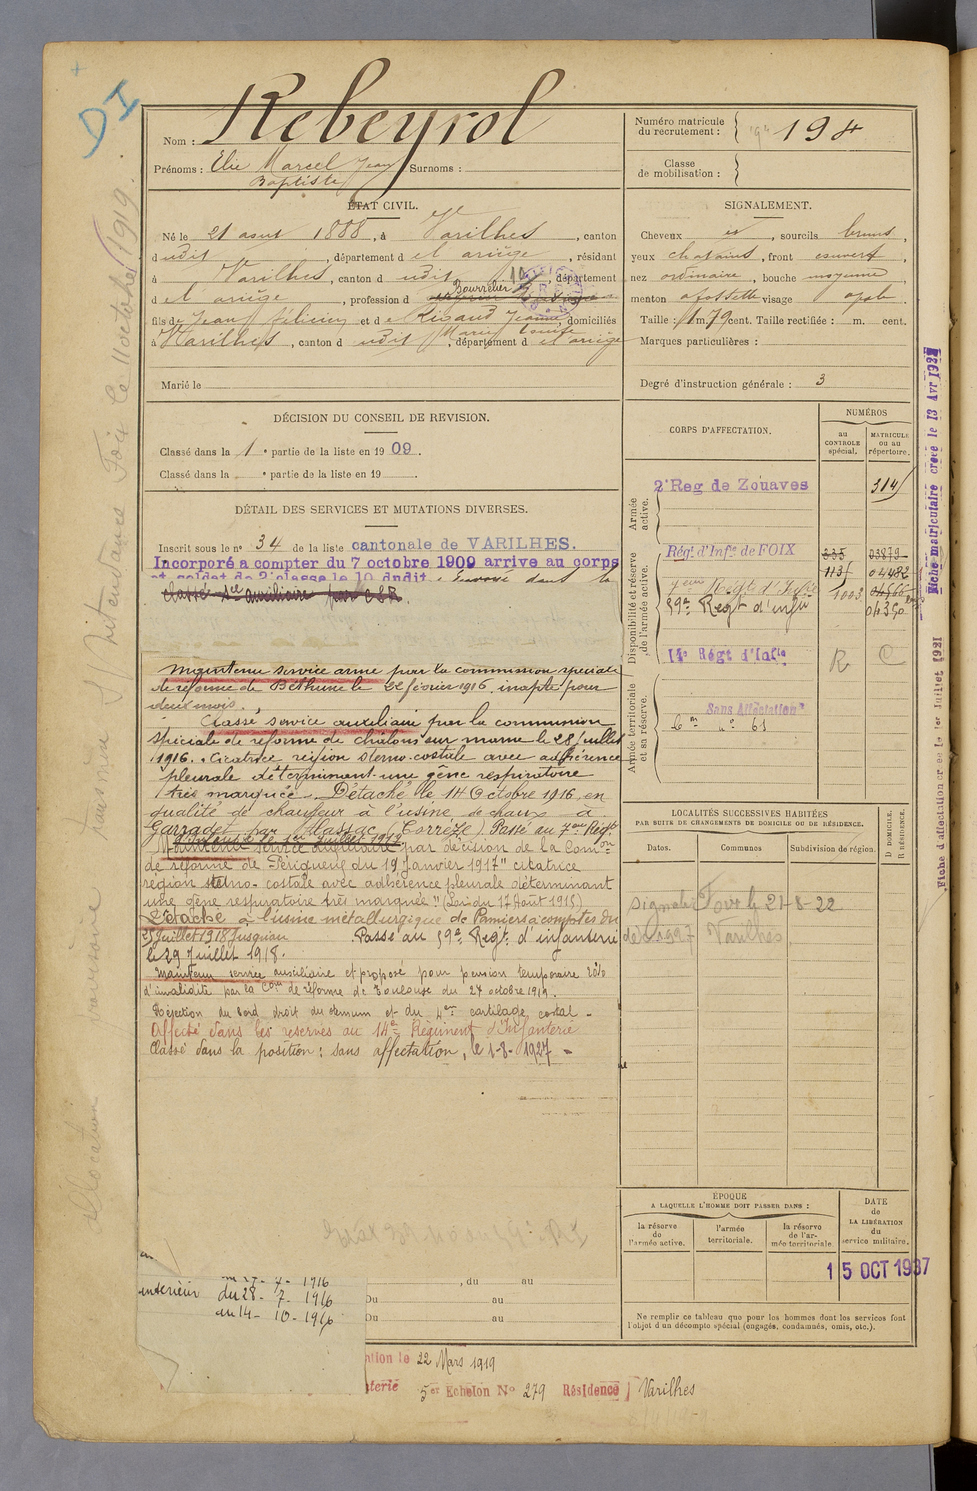 DI
Nom : Rebeyrol
Prénoms : Elie Marcel Jean Surnoms :
Baptiste
Numéro matricule
du recrutement : 194
Classe
de mobilisation :
ÉTAT CIVIL.
Né le 21 aout 1888, à Varilhes, canton
dudit, département de l'ariège, résidant
à Varilhes, canton dudit, département
de l'ariège, profession de Bourrelier
fils de Jean Félicien et de Rigaud Jeanne, domiciliés
Marie Louise
à Varilhes, canton dudit, département de l'ariège
Marié le
SIGNALEMENT.
Cheveux et, sourcils bruns,
yeux chatains, front couvert,
nez ordinaire, bouche moyenne
menton a fossette visage ovale.
Taille : 1 m. 79 cent. Taille rectifiée : m. cent.
Marques particulières :
Degré d'instruction générale : 3
DÉCISION DU CONSEIL DE REVISION.
Classé dans la 1e partie de la liste en 1909.
Classé dans la e partie de la liste en 19
DÉTAIL DES SERVICES ET MUTATIONS DIVERSES.
Inscrit sous le n° 34 de la liste cantonale de VARILHES.
Incorporé a compter du 7 octobre 1909 arrive au corps
et soldat de 2e classe le 10 dudit. dans le
classé sce auxiliaire par CSR
Maintenu service armé par la commission spéciale
de réforme de Béthune le 22 février 1916, inapte pour
deux mois.
Classé service auxiliaire par la commission
spéciale de réforme de châlons sur marne le 28 juillet
1916. Cicatrice région sterno-costale avec adhérence
pleurale déterminant une gêne respiratoire
très marquée. Détaché le 14 Octobre 1916, en
qualité de chauffeur à l'usine de chaux à
Garradet par Alassac (Corrèze) Passé au 7eme Régt
d'Infanterie le 1er Juillet 1917
Maintenu service auxiliaire par décision de la Comon
de réforme de Périgueux du 19 Janvier 1917 "citatrice
région sterno-costale avec adhérence pleurale déterminant
une gêne respiratoire très marquée" (Loi du 17 Août 1915)
Détaché à l'usine métallurgique de Pamiers à compter du
25 Juillet 1918 jusqu'au Passé au 59e Régt d'infanterie
le 29 Juillet 1918.
Maintenu service auxiliaire et proposé pour pension temporaire 20%
d'invalidité par la Com de réforme de Toulouse du 27 octobre 1919.
Résection du bord droit du sternum et du 4eme cartilage costal -
Affecté dans les réserves au 14e Régiment d'Infanterie
Classé dans la position : sans affectation, le 1-8-1927 -
CORPS D'AFFECTATION.
NUMÉROS
AU
CONTROLE
spécial.
MATRICULE
ou au
répertoire.
Armée
active.
2e Reg de Zouaves 314
Disponibilité et réserve
de l'armée active.
Régt d'Infie de FOIX 835 03879
1135 04482
7eme Régt d'Infie 1003
59e Regt d'infie 04350
Armée territoriale
et sa réserve.
14e Régt d'Infie R
Sans Affectation
61
LOCALITÉS SUCCESSIVES HABITÉES
PAR SUITE DE CHANGEMENTS DE DOMICILE OU DE RÉSIDENCE.
Dates. Communes Subdivision de région. D DOMICILE. R RÉSIDENCE.
Signalé Foix le 21-8-22
1927 Varilhes
ÉPOQUE
A LAQUELLE L'HOMME DOIT PASSER DANS :
la réserve
de
l'armée active.
l'armée
territoriale.
la réserve
de l'ar-
mée territoriale.
DATE
de
LA LIBÉRATION
du
service militaire.
15 OCT 1937
Ne remplir ce tableau que pour les hommes dont les services font
l'objet d'un décompte spécial (engagés, condamnés, omis, etc.).
, du au
Du au
Du au
1916
intérieur du 28 - 7 - 1916
au 14 - 10 - 1916
ntion le 22 Mars 1919
terie 5er Echelon No 279 Résidence Varilhes
Allocation provisoire Intendance Foix le 11 octobre 1919.
Fiche matriculaire créée le 13 Avr 1927
Fiche d'affectation créée le 1er Juillet 1921